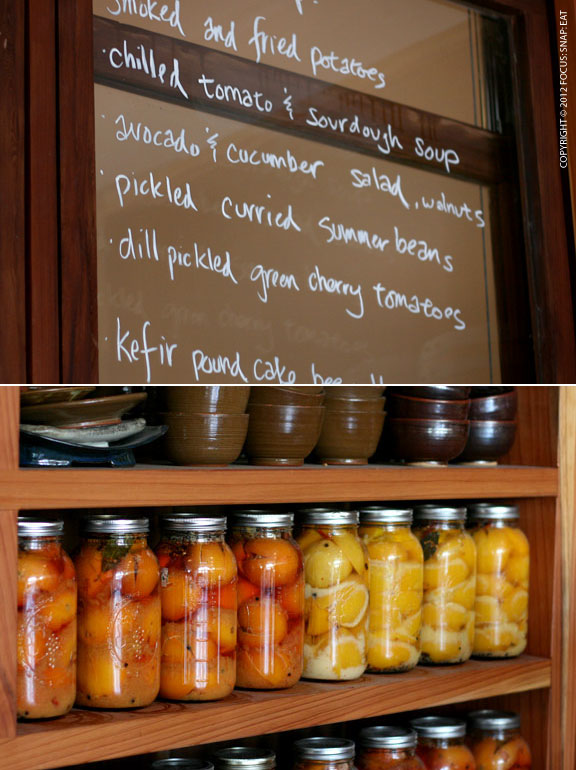 smoked and fried potatoes
· chilled tomato & sourdough soup
· avocado & cucumber salad, walnuts
· pickled curried summer beans
· dill pickled green cherry tomatoes
· kefir pound cake
COPYRIGHT © 2012 FOCUS: SNAP: EAT